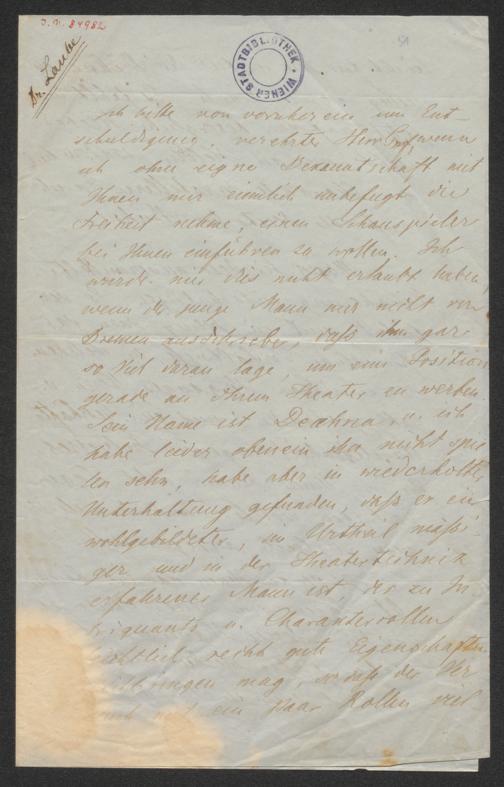 J. N. 84982
Dr. Laube
WIENER STADTBIBLIOTHEK
Ich bitte von vornherein um Ent-
schuldigung, verehrter Herr, wenn
ich ohne eigne Bekanntschaft mit
Ihnen mir ziemlich unbefugt die
Freiheit nehme, einen Schauspieler
bei Ihnen einführen zu wollen. Ich
würde mir dies nicht erlaubt haben,
wenn der junge Mann mir nicht von
Bremen aus schriebe, daß ihm gar
so viel daran läge, um eine Position
gerade an Ihrem Theater zu werben.
Sein Name ist Deahna, u. ich
habe leider obenein ihn nicht spie-
len sehn, habe aber in wiederholter
Unterhaltung gefunden, daß er ein
wohlgebildeter, im Urtheil mäßi-
ger und in der Theatertechnik
erfahrener Mann ist, der zu In-
triguants u. Charakterrollen
recht gute Eigenschaften
mag, der Ver-
ein Paar Rollen viel